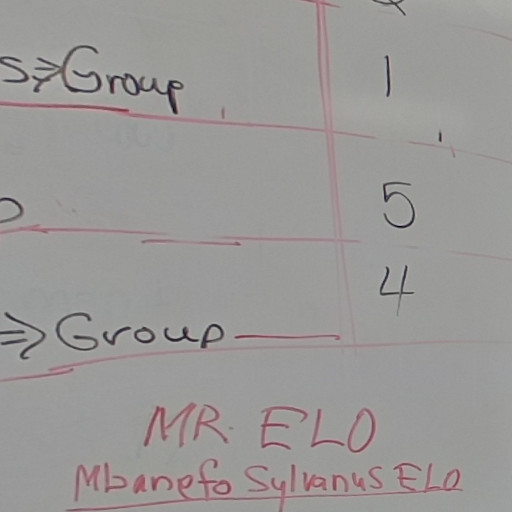 S⇒Group 1
5
4
⇒Group
MR. ELO
Mbanefo Sylvanus ELO